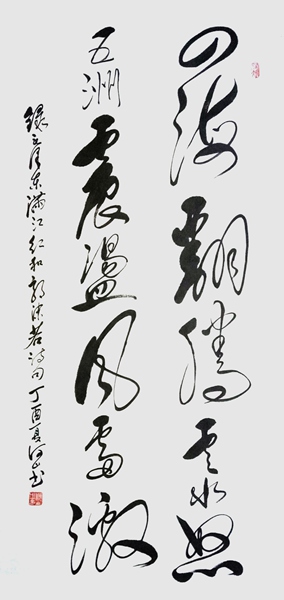 四海翻腾云水怒
五洲震盪风雷激
录毛泽东满江红和郭沫若诗句丁酉夏